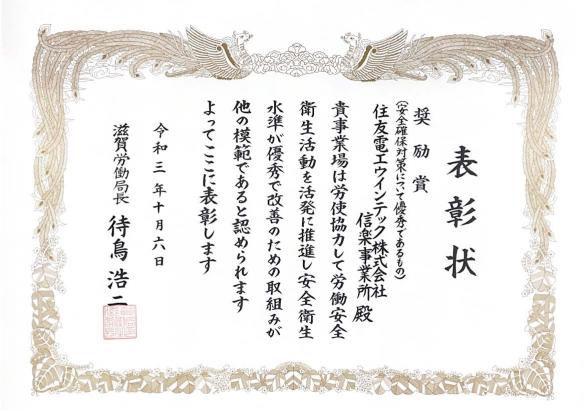 表彰状
奨励賞
(安全確保対策について優秀であるもの)
住友電工ウインテック株式会社
信楽事業所 殿
貴事業場は労使協力して労働安全
衛生活動を活発に推進し安全衛生
水準が優秀で改善のための取組みが
他の模範であると認められます
よってここに表彰します
令和三年十月六日
滋賀労働局長 待鳥浩二